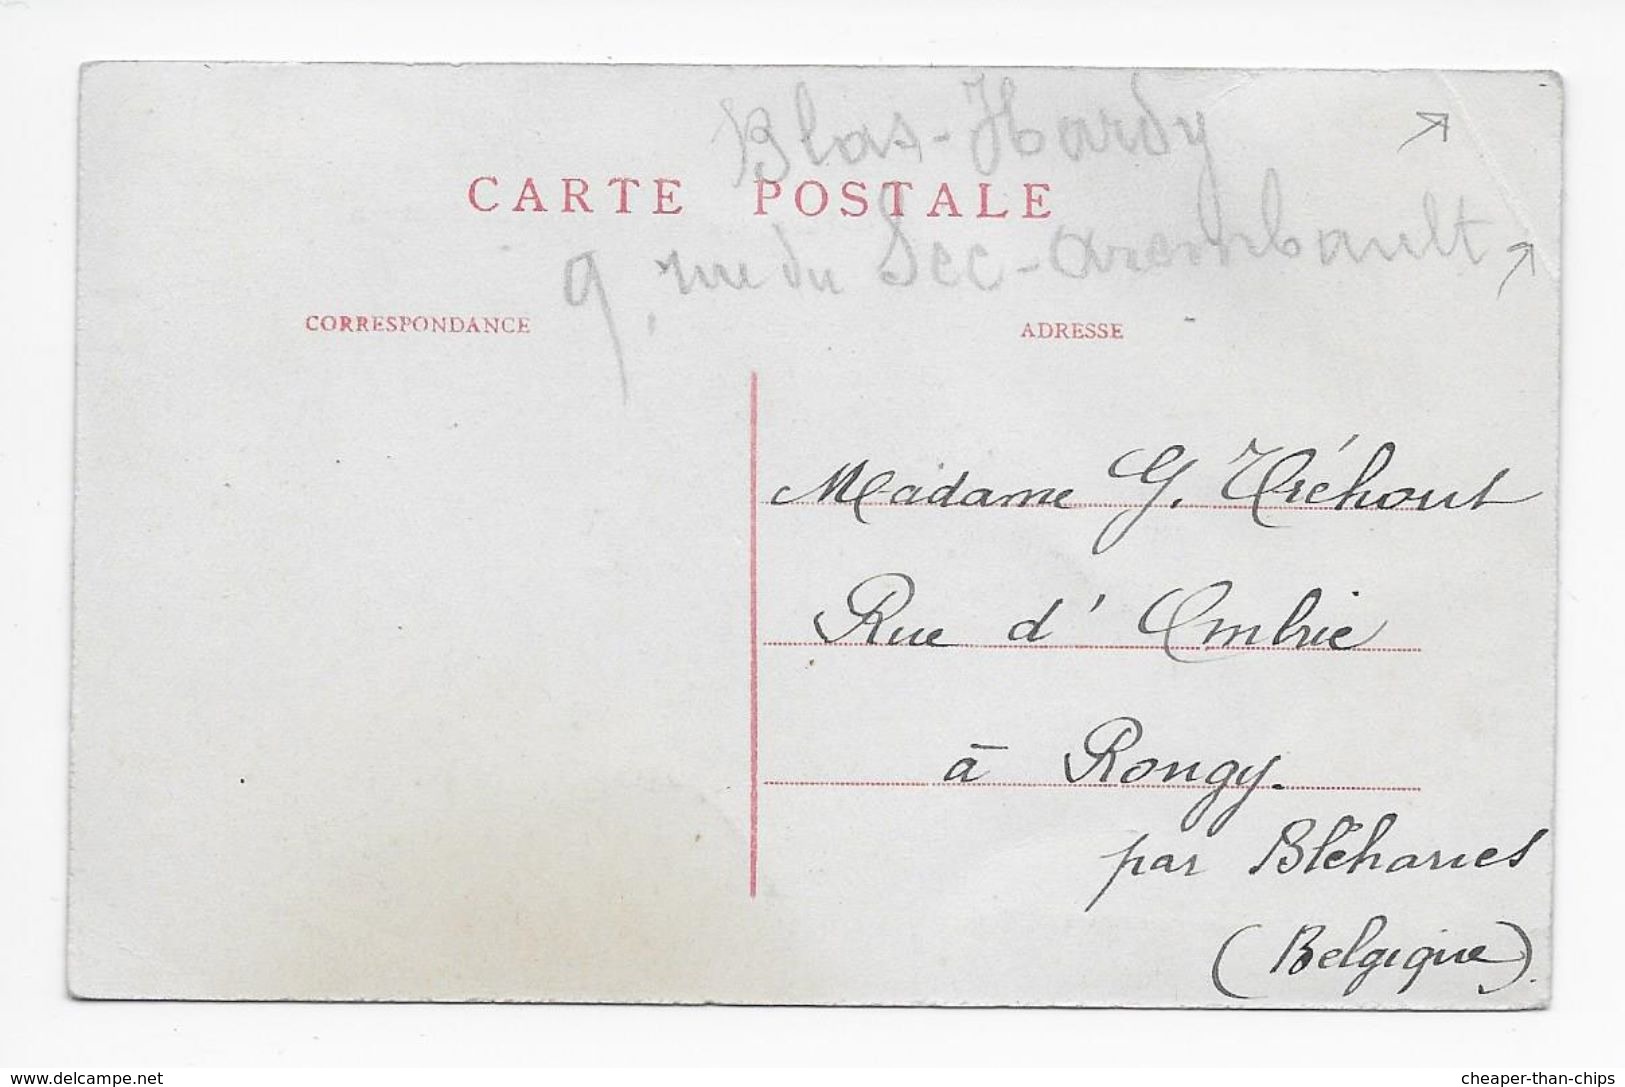 Blas-Hardy
CARTE POSTALE
9, rue du Sec-Arembault
CORRESPONDANCE
ADRESSE
Madame G. Tréhout
Rue d' Ombrie
à Rongy.
par Bléharies
(Belgique).
www.delcampe.net
cheaper-than-chips